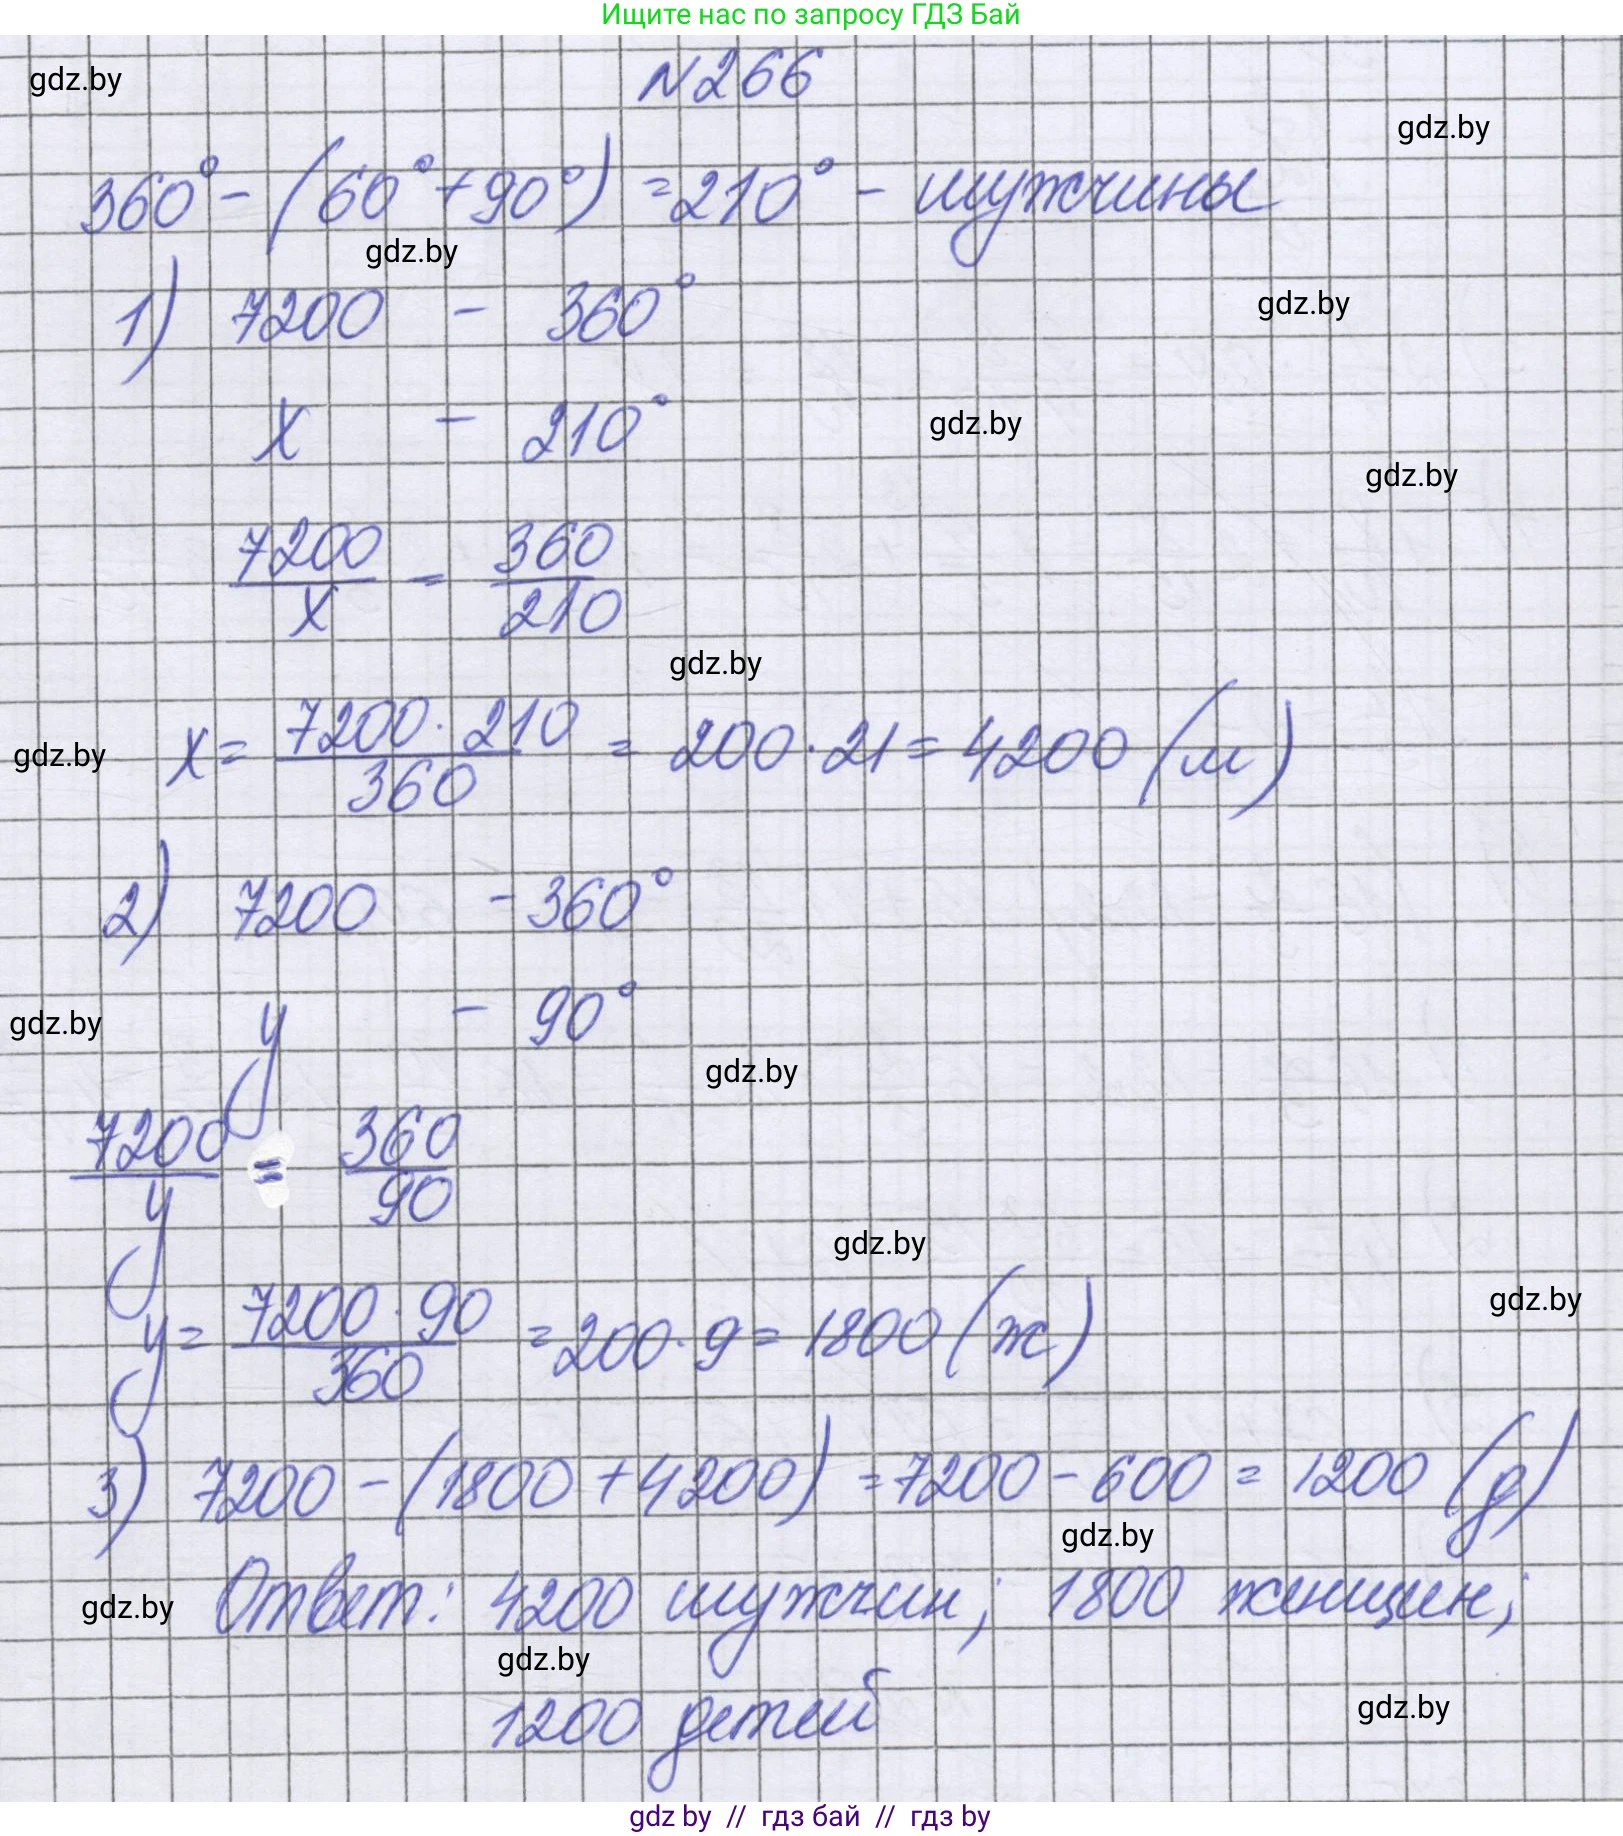 Ищите нас по запросу ГДЗ Бай
N266
gdz.by
gdz.by
360° - (60° + 90°) = 210° - мужчины
gdz.by
1) 7200 - 360°
gdz.by
x - 210°
gdz.by
gdz.by
7200/x = 360/210
gdz.by
gdz.by
x = 7200 · 210/360 = 200 · 21 = 4200 (м)
2) 7200 - 360°
y - 90°
gdz.by
gdz.by
7200/y = 360/90
gdz.by
gdz.by
y = 7200 · 90/360 = 200 · 9 = 1800 (ж)
3) 7200 - (1800 + 4200) = 7200 - 600 = 1200 (д)
gdz.by
gdz.by
Ответ: 4200 мужчин; 1800 женщин;
gdz.by
1200 детей
gdz.by
gdz by // гдз бай // гдз by